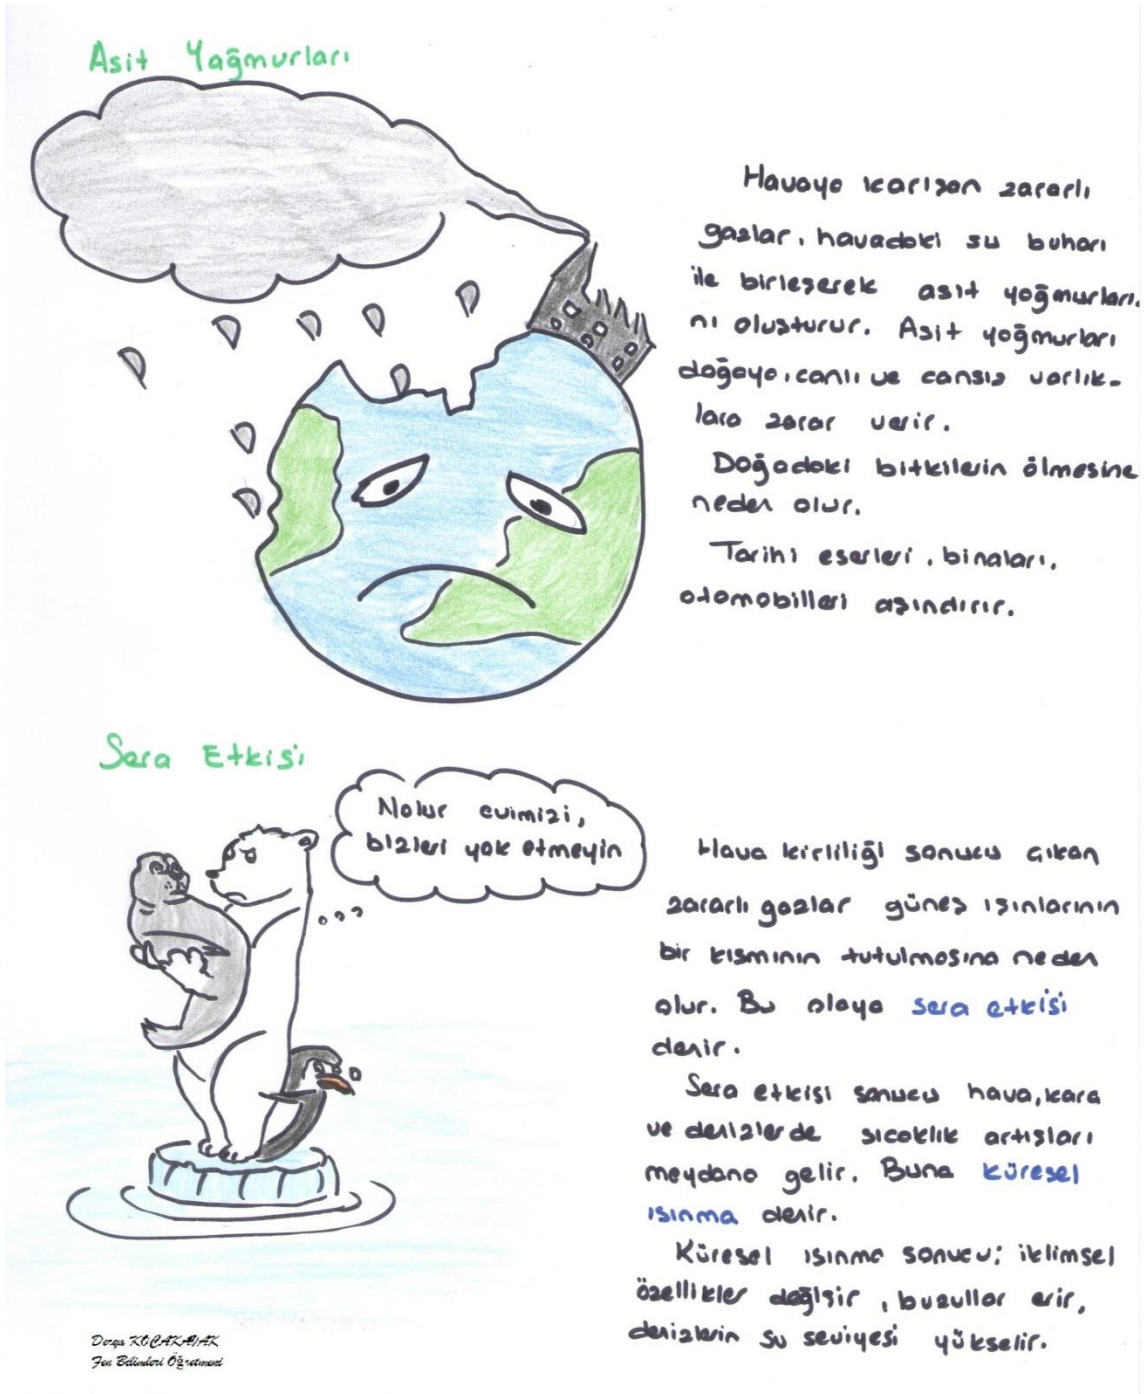 Asit Yağmurları
Havaya karışan zararlı
gazlar, havadaki su buharı
ile birleşerek asit yağmurları.
nı oluşturur. Asit yağmurları
doğaya, canlı ve cansız varlık-
lara zarar verir.
Doğadaki bitkilerin ölmesine
neden olur.
Tarihi eserleri, binaları,
otomobilleri aşındırır.
Sera Etkisi
Nolur evimizi,
bizleri yok etmeyin
Hava kirliliği sonucu çıkan
zararlı gazlar güneş ışınlarının
bir kısmının tutulmasına neden
olur. Bu olaya sera etkisi
denir.
Sera etkisi sonucu hava, kara
ve denizlerde sıcaklık artışları
meydana gelir. Buna küresel
ısınma denir.
Küresel ısınma sonucu; iklimsel
özellikler değişir, buzullar erir,
denizlerin su seviyesi yükselir.
Derya KOÇAKABAK
Fen Bilimleri Öğretmeni